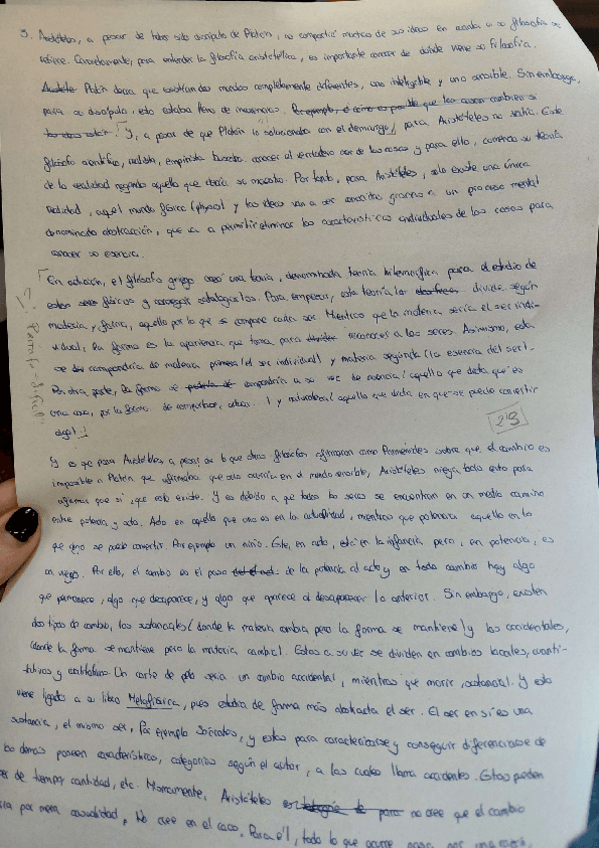 3. Aristóteles, a pesar de haber sido discípulo de Platón, no compartió muchas de sus ideas en cuanto a su filosofía se
refiere. Concretamente, para entender la filosofía aristotélica, es importante conocer de dónde viene su filosofía.
Platón decía que existían dos mundos completamente diferentes, uno inteligible y uno sensible. Sin embargo,
para su discípulo, esto estaba lleno de
Y, a pesar de que Platón lo solucionaba con el demiurgo, para Aristóteles no valía. Este
filósofo científico, realista, empirista buscaba conocer el verdadero ser de las cosas y para ello, comenzó su teoría
de la realidad negando aquello que decía su maestro. Por tanto, para Aristóteles, solo existe una única
realidad, aquel mundo físico (physis) y las ideas van a ser gracias a un proceso mental
denominado abstracción, que va a permitir eliminar las características individuales de las cosas para
conocer su esencia.
En adición, el filósofo griego creó una teoría, denominada teoría hilemórfica para el estudio de
estos seres físicos y Para empezar, esta teoría los divide según
materia y forma, aquello por lo que se compone cada ser. Mientras que la materia sería el ser indi-
vidual, la forma es la apariencia que toma para reconocer a los seres. Asimismo, esta
se compondría de materia primera (el ser individual) y materia segunda (la esencia del ser).
Por otra parte, la forma se compondría a su vez de esencia (aquello que dicta qué es
una cosa, por la forma de comportarse, ...) y naturaleza (aquello que dicta en qué se puede convertir
algo).
Y es que para Aristóteles, a pesar de lo que otros filósofos afirmaron como Parménides sobre que el cambio es
imposible o Platón que afirmaba que solo ocurría en el mundo sensible, Aristóteles niega todo esto para
afirmar que sí, que este existe. Y es debido a que todos los seres se encuentran en un medio camino
entre potencia y acto. Acto es aquello que uno es en la actualidad, mientras que potencia aquello en lo
que algo se puede convertir. Por ejemplo un niño. Este, en acto, está en la infancia pero, en potencia, es
un viejo. Por ello, el cambio es el paso de la potencia al acto y en todo cambio hay algo
que permanece, algo que desaparece, y algo que aparece al desaparecer lo anterior. Sin embargo, existen
dos tipos de cambio, los sustanciales (donde la materia cambia pero la forma se mantiene) y los accidentales,
(donde la forma se mantiene pero la materia cambia). Estos a su vez se dividen en cambios locales, cuanti-
tativos y cualitativos. Un corte de pelo sería un cambio accidental, mientras que morir, sustancial. Y esto
viene ligado a su libro Metafísica, pues estudia de forma más abstracta el ser. El ser en sí es una
sustancia, el mismo ser, por ejemplo Sócrates, y estos para caracterizarse y conseguir diferenciarse de
los demás poseen características, categorías según el autor, a las cuales llama accidentes. Estas pueden
ser de tiempo, cantidad, etc. Nuevamente, Aristóteles no cree que el cambio
por mera casualidad, No cree en el caos. Para él, todo lo que ocurre pasa por una